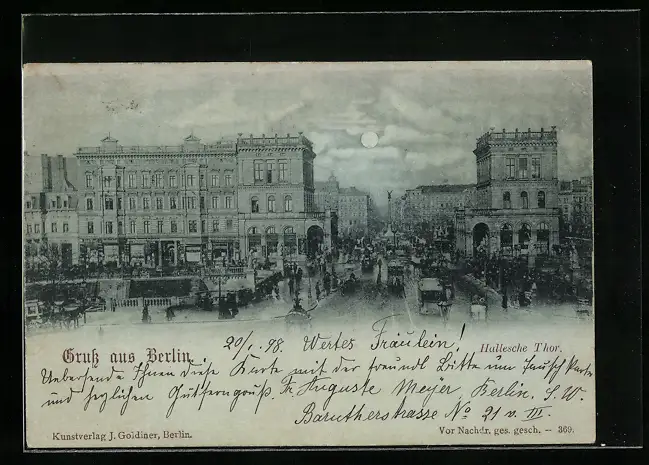 Gruß aus Berlin.
20/1. 98. Wertes Fräulein!
Hallesche Thor.
Uebersende Ihnen diese Karte mit der freundl Bitte um Tausch Karte
und herzlichen Gruß. Fr. Auguste Meyer, Berlin, S. W.
Barutherstrasse No 21 v. III.
Kunstverlag J. Goldiner, Berlin.
Vor Nachdr. ges. gesch. – 369.